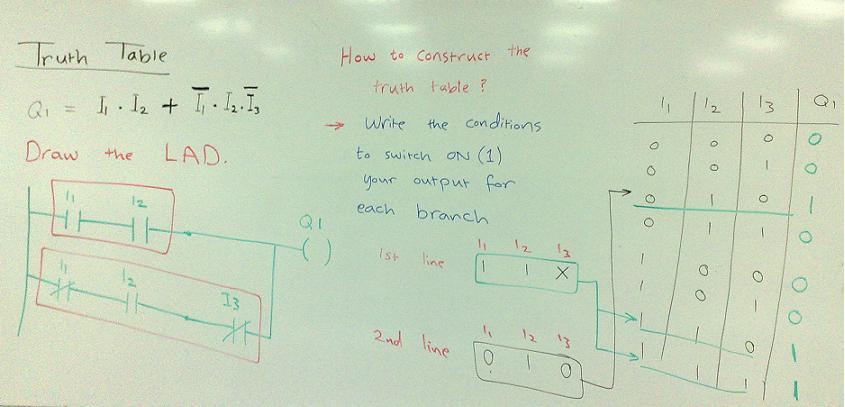 Truth Table
Q1 = I1 · I2 + I̅1 · I2 · I̅3
Draw the LAD.
I1 I2
Q1
( )
I1 I2 I3
How to construct the
truth table ?
→ Write the conditions
to switch ON (1)
your output for
each branch
I1 I2 I3
1st line 1 1 X
I1 I2 I3
2nd line 0 1 0
I1 I2 I3 Q1
0 0 0 0
0 0 1 0
0 1 0 1
0 1 1 0
1 0 0 0
1 0 1 0
1 1 0 1
1 1 1 1